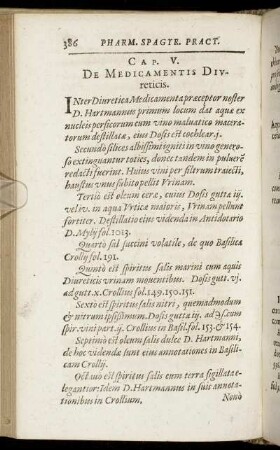 386 PHARM. SPAGYR. PRACT.
CAP. V.
DE MEDICAMENTIS DIU-
reticis.
INter Diuretica Medicamenta præceptor noster
D. Hartmannus primum locum dat aquæ ex
nucleis persicorum cum vino maluatico macera-
torum destillatæ, eius Dosis est cochlear. j.
Secundo silices albissimi igniti in vino genero-
so extinguantur toties, donec tandem in puluerē
redacti fuerint. Huius vini per filtrum traiecti,
haustus vnus subito pellit Vrinam.
Tertiò est oleum ceræ, cuius Dosis guttæ iij.
vel iv. in aqua Vrticæ maioris, Vrinam pellunt
fortiter. Destillatio eius videnda in Antidotario
D. Mylij fol. 1013.
Quartò sal succini volatile, de quo Basilica
Crollij fol. 191.
Quintò est spiritus salis marini cum aquis
Diureticis vrinam mouentibus. Dosis gutt. vj.
ad gutt. x. Crollius fol. 149. 150. 151.
Sextò est spiritus salis nitri, quemadmodum
& nitrum ipsissimum. Dosis guttæ iij. ad
spir. vini part. ij. Crollius in Basil. fol. 153. & 154.
Septimò est oleum salis dulce D. Hartmanni,
de hoc videndæ sunt eius annotationes in Basili-
cam Crollij.
Octauò est spiritus salis cum terra sigillata e-
legantior: Idem D. Hartmannus in suis annota-
tionibus in Crollium.
Nonò